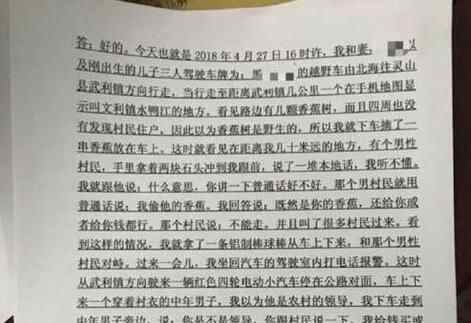 答：好的。今天也就是 2018 年 4 月 27 日 16 时许，我和妻
及刚出生的儿子三人驾驶车牌为： 的越野车由北海往灵山
县武利镇方向行走，当行走至距离武利镇几公里一个在手机地图显
示叫文利镇水鸭江的地方。看见路边有几颗香蕉树，而且四周也没
有发现村民住户，因此以为香蕉树是野生的，所以我就下车摘了一
串香蕉放在车上。这时就看见在距离我几十米远的地方，有个男性
村民，手里拿着两块石头冲到我跟前，说了一堆本地话，我听不懂。
我就跟他说：什么意思，你讲一下普通话好不好。那个男村民就用
普通话说：我偷他的香蕉。我回答说：既然是你的香蕉，还给你或
者给你钱都行。那个村民说：不能走。并且叫了很多村民过来。看
到这样的情况，我就拿了一条铝制棒球棒从车上下来。和那个男性
村民对峙。过来一会儿，我坐回汽车的驾驶室内打电话报警。这时
从武利镇方向驶来一辆红色四轮电动小汽车停在公路对面，车上下
来一个穿着村衣的中年男子，我以为他是农村的领导，我下车走到